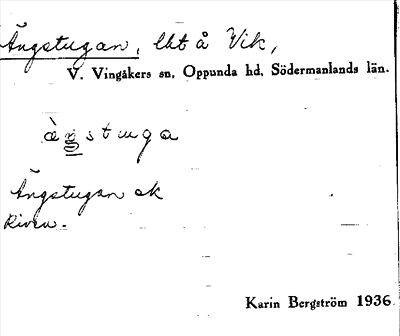 Ängstugan, lht å Vik,
V. Vingåkers sn, Oppunda hd, Södermanlands län.
ängstuga
Ängstugan ek
Riven.
Karin Bergström 1936